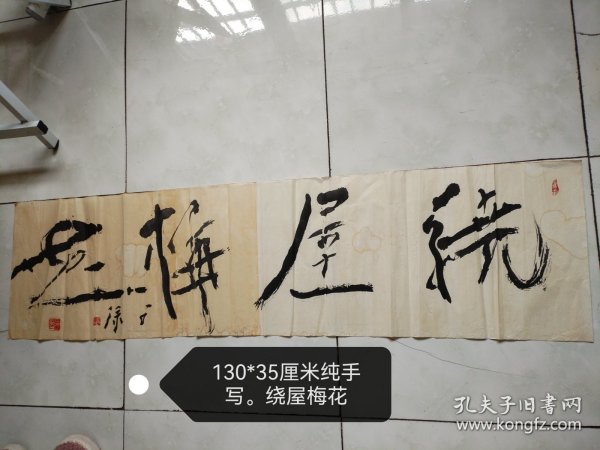 繞屋梅花
130*35厘米纯手
写。绕屋梅花
孔夫子旧書网
www.kongfz.com